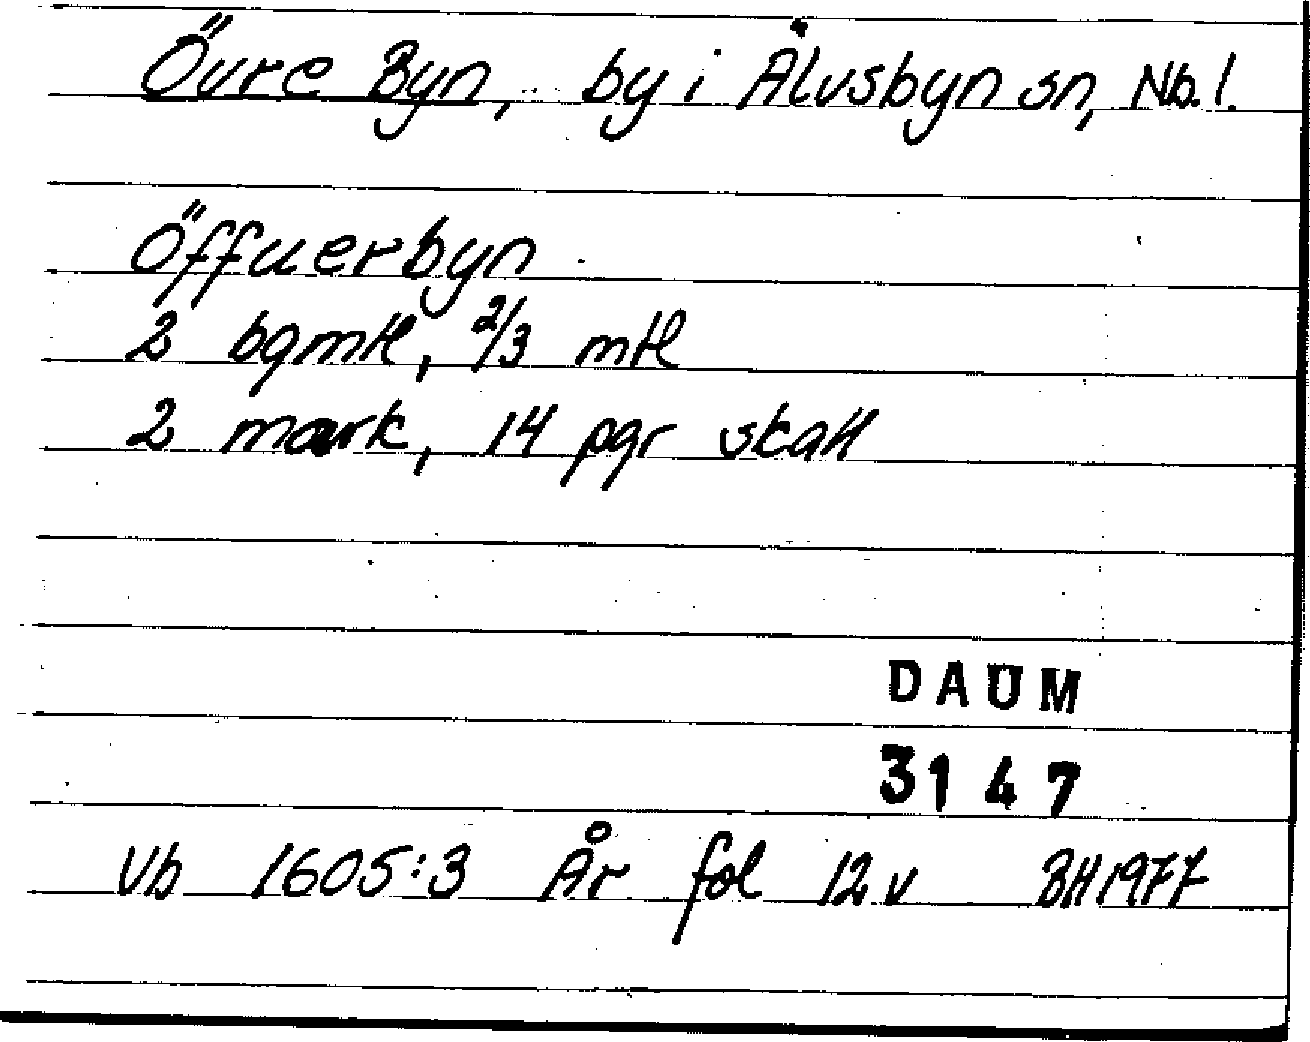 Övre Byn, by i Älvsbyn sn, Nb. l.
Öffuerbyn
2 bgmtl, 2/3 mtl
2 mark, 14 pgr skatt
DAUM
3147
Vb 1605:3 År fol 12 v BH 1977